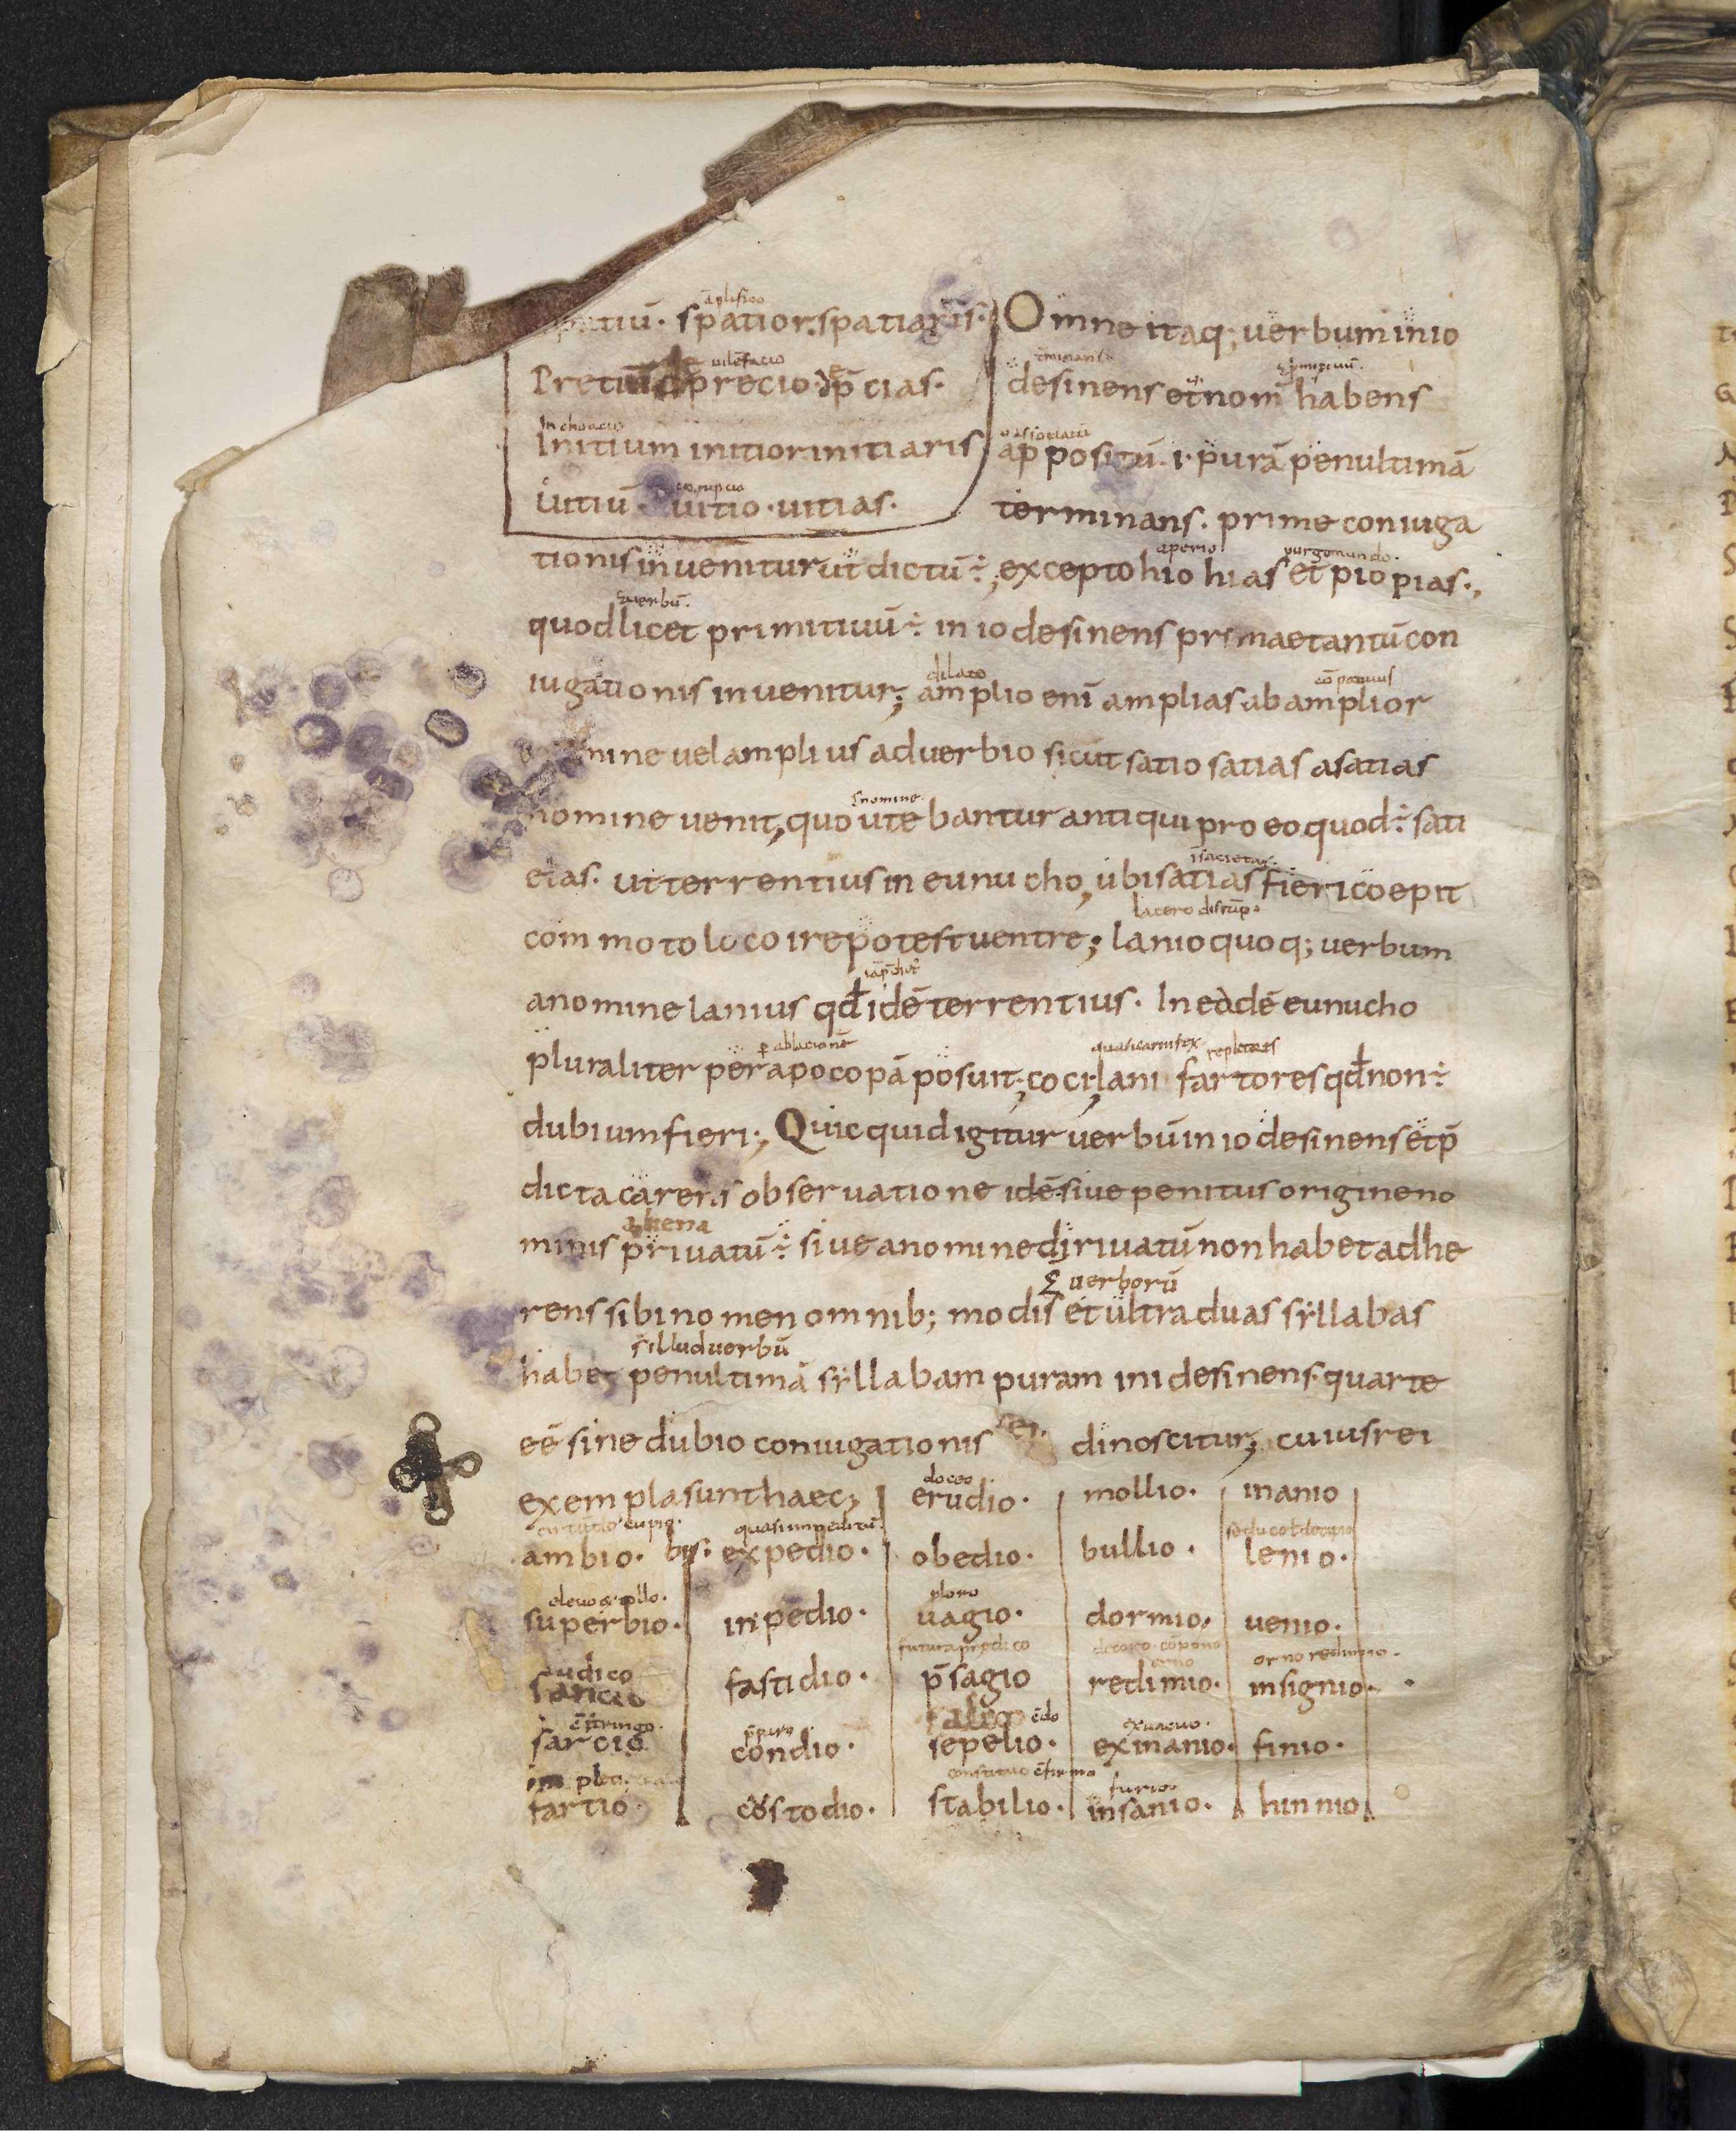 spatiū. spatior. spatiaris.
Pretiū
precio
Initium initior initiaris
uitiū. uitio. uitias.
Omne itaq; uerbum in io
desinens et nom̄ habens
appositū. i. purā penultimā
terminans. prime coniuga
tionis inuenitur ut dictū ÷; excepto hio hias et pio pias.,
aperio
quod licet primitiuū ÷ in io desinens primae tantū con
dilato
iugationis inuenitur; amplio enī amplias ab amplior
mine uel amplius aduerbio sicut satio satias a satias
nomine uenit, quo utebantur antiqui pro eo quod ÷ sati
etas. ut terrentius in eunucho, ubi satias fieri coepit
commoto loco ire potest uentre; lanio quoq; uerbum
a nomine lanius qđ idē terrentius. In eadē eunucho
pluraliter per apocopā posuit; coci, lani fartores qđ non ÷
dubium fieri; Quicquid igitur uerbū in io desinens et p̄
dicta carens obseruatione idē siue penitus origine no
minis priuatū ÷ siue a nomine diriuatū non habet adhe
uerborū
rens sibi nomen omnib; modis et ultra duas syllabas
illud uerbū
habet penultimā syllabam puram in i desinens. quarte
eē sine dubio coniugationis dinoscitur; cuius rei
doceo
exempla sunt haec; erudio. mollio. inanio
ambio. expedio. obedio. bullio. lenio.
ploro
superbio. inpedio. uagio. dormio, uenio.
sancio fastidio. p̄sagio redimio. insignio.
sarcio condio. sepelio. exinanio. finio.
furio
fartio costodio. stabilio. insanio. hinnio